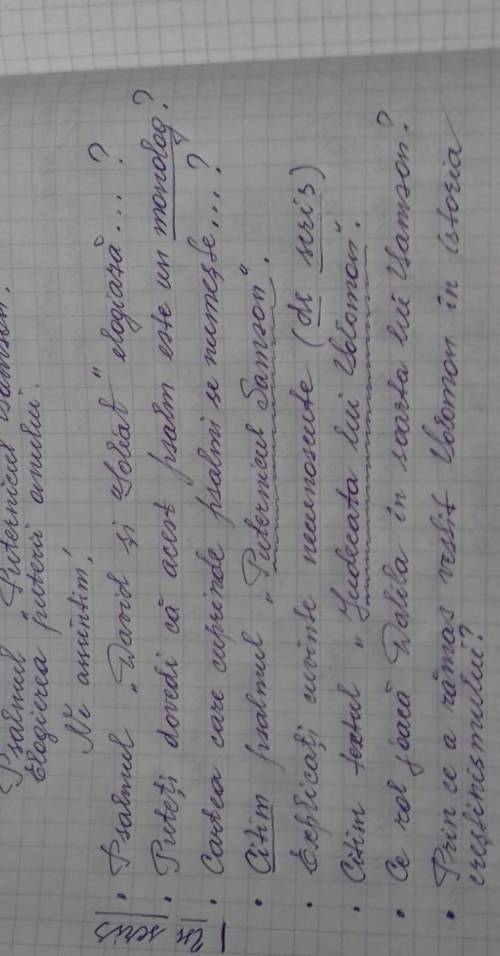 Psalmul Puternicul Samson.
Elogierea puterii omului.
Ne amintim!
În scris
• Psalmul „David și Goliat" elogiază... ?
• Puteți dovedi că acest psalm este un monolog?
• Cartea care cuprinde psalmi se numește...?
• Citim psalmul „Puternicul Samson".
• Explicați cuvinte necunoscute (în scris)
• Citim textul „Judecata lui Solomon".
• Ce rol joacă Dalila în soarta lui Samson?
• Prin ce a rămas vestit Solomon în istoria
creștinismului?